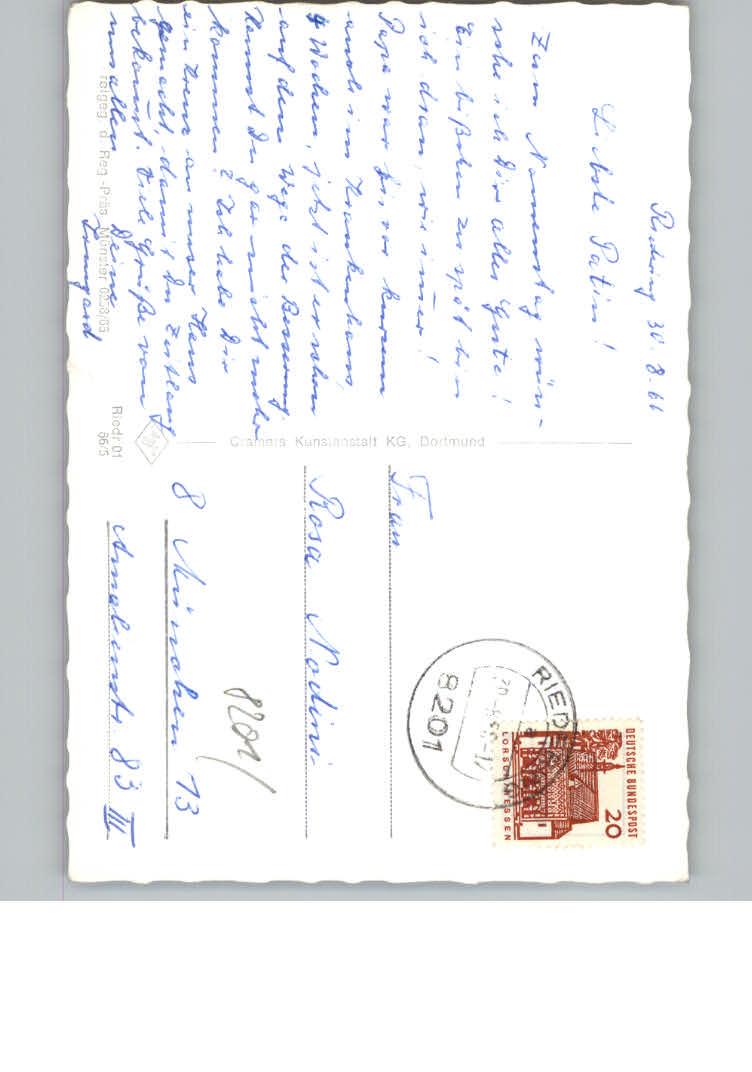 Riedering 30.8.66
Liebste Patin!
Zum Namenstag wün-
sche ich Dir alles Gute!
Ein bißchen zu spät bin
ich dran, wie immer!
Papa war bis vor kurzem
auch im Krankenhaus,
4 Wochen, jetzt ist er schon
auf dem Wege der Besserung.
Kannst Du gar nicht mehr
kommen? Ich habe Dir
ein Kreuz an unser Haus
gemacht, damit Du Zeitlang
bekommst. Viele Grüße von
uns allen
Deine
Irmgard
freigeg. d. Reg.-Präs. Münster
Riedr 01
66/5
Cramers Kunstanstalt KG, Dortmund
Frau
Rosa Nodini
8 München 13
8201
Amalienstr. 83 III
8201
DEUTSCHE BUNDESPOST
20
TORHALLE LORSCH/HESSEN